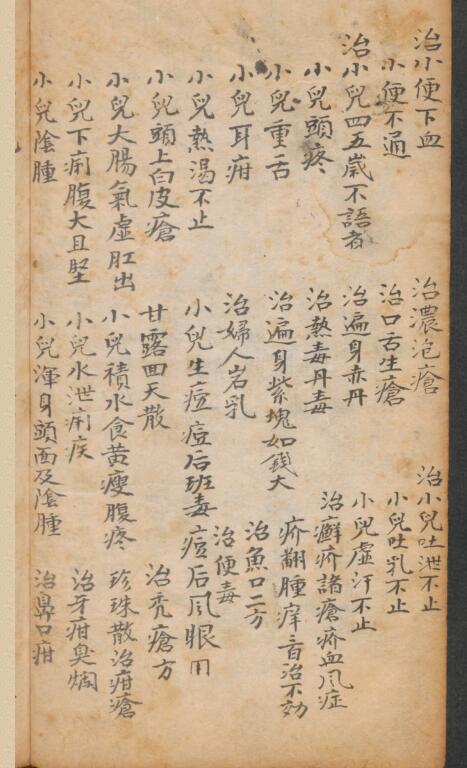 治小便下血 治濃泡瘡 治小兒吐泄不止
小便不通 治口舌生瘡 小兒吐乳不止
治小兒四五歲不語者 治遍身赤丹 小兒虛汗不止
小兒頭疼 治熱毒丹毒 治癬疥諸瘡疥血风症
小兒重舌 治遍身紫塊如錢大 疥翻腫痒 治不効
小兒耳疳 治婦人岩乳 治魚口二方
治便毒
小兒熱渴不止 小兒生痘痘后班毒 痘后风眼用
小兒頭上白皮瘡 甘露回天散 治禿瘡方
小兒大腸氣虛肛出 小兒積水食黃瘦腹疼 珍珠散治疳瘡
小兒下痢腹大且堅 小兒水泄痢疾 治牙疳臭爛
小兒陰腫 小兒渾身頭面及陰腫 治鼻口疳